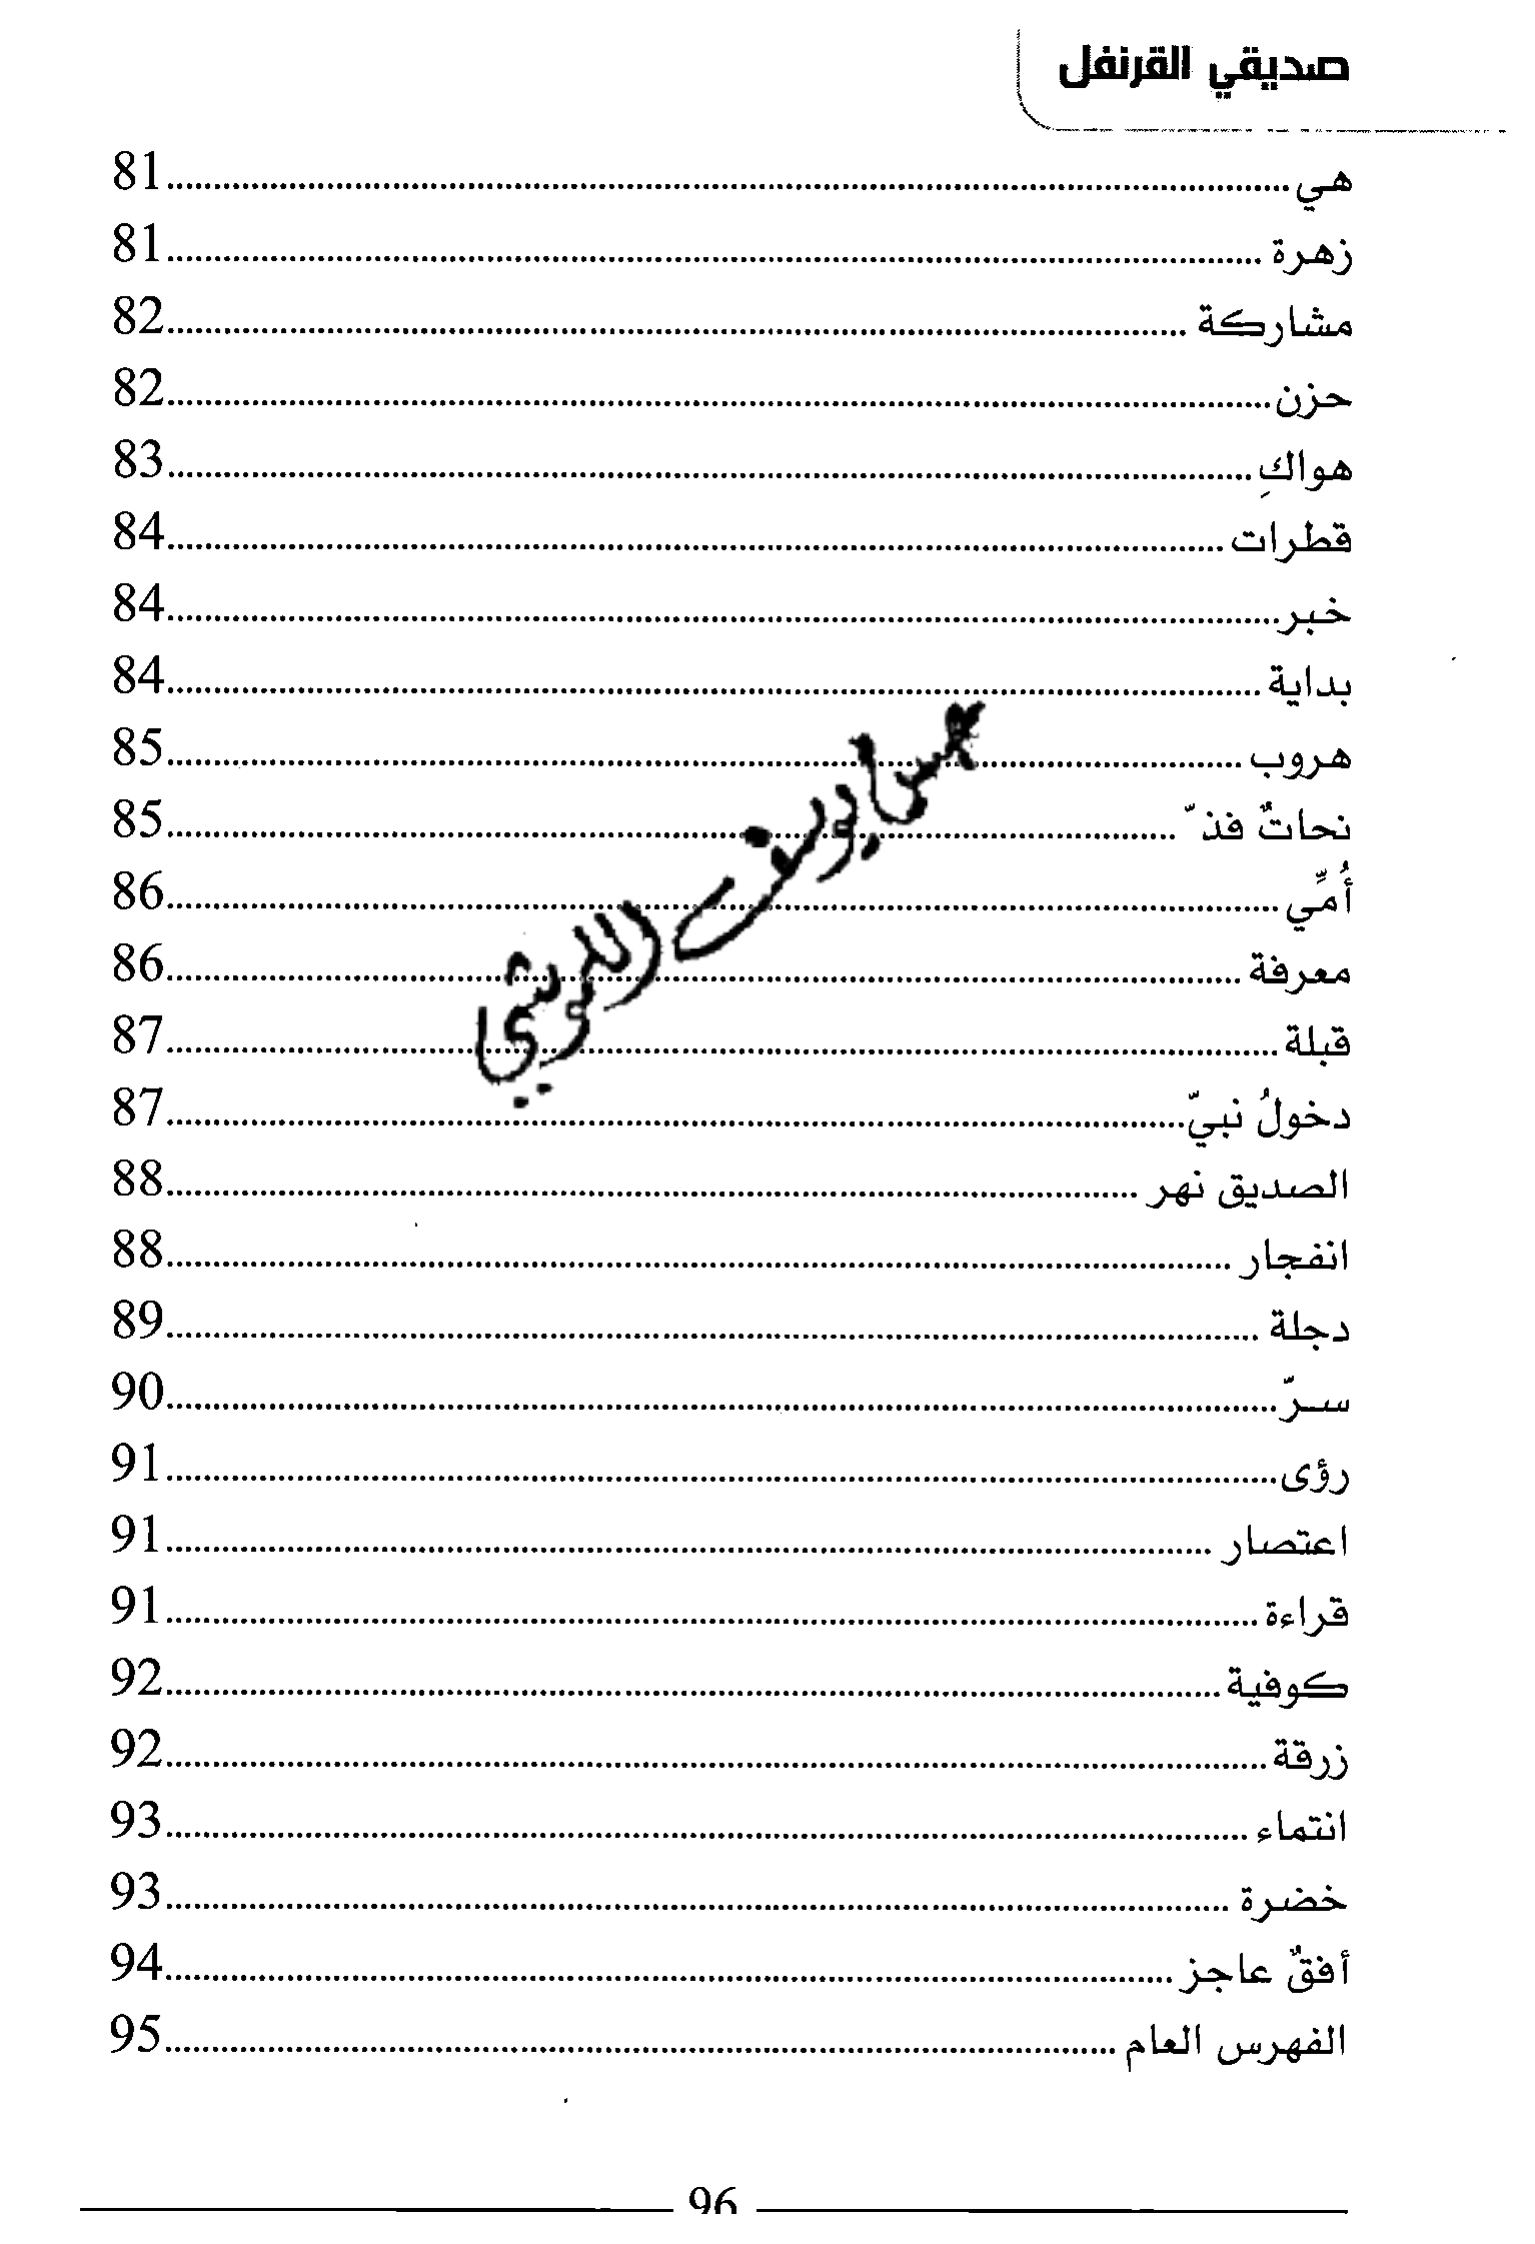 صديقي القرنفل
هي.......................................................81
زهرة.......................................................81
مشاركة.......................................................82
حزن.......................................................82
هواكِ.......................................................83
قطرات.......................................................84
خبر.......................................................84
بداية.......................................................84
هروب.......................................................85
نحاتٌ فذّ.......................................................85
أُمِّي.......................................................86
معرفة.......................................................86
قبلة.......................................................87
دخولُ نبيّ.......................................................87
الصديق نهر.......................................................88
انفجار.......................................................88
دجلة.......................................................89
سرّ.......................................................90
رؤى.......................................................91
اعتصار.......................................................91
قراءة.......................................................91
كوفية.......................................................92
زرقة.......................................................92
انتماء.......................................................93
خضرة.......................................................93
أفقٌ عاجز.......................................................94
الفهرس العام.......................................................95
96